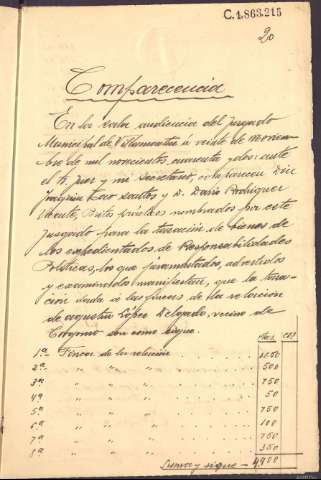 C.1.863.215
20
Comparecencia
En la sala audiencia del juzgado
Municipal de Villamontan á veinte de noviem-
bre de mil novecientos cuarenta y dos: ante
el Sr. juez y mi secretario, comparecen Dn
Joaquin santos y D. Dario Rodriguez
Vicente, Peritos prácticos nombrados por este
juzgado para la tasación de bienes de
los expedientados de Responsabilidades
Politicas, los que juramentados, advertidos
y examinados manifiestan, que la tasa-
ción dada á las fincas de la relación
de agustin López Delgado, vecino de
son como sigue.
Ptas. cts
1ª Finca de la relación 1000
2ª " " " 500
3ª " " " 750
4ª " " " 50
5ª " " " 750
6ª " " " 100
7ª " " " 750
8ª " " " 350
Suma y sigue —